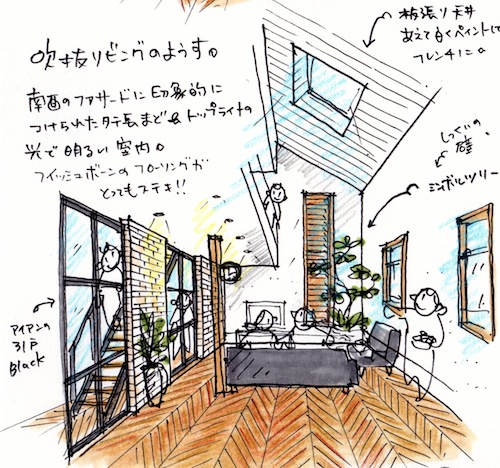 吹き抜リビングのようす。
南西のファサードに印象的に
つけられたタテ長まど& トップライトの
光で明るい室内。
フィッシュボーンのフローリングが
とってもステキ!!
板張り天井
あえて白くペイントして
フレンチに。
しっくいの
壁。
シンボルツリー
アイアンの
引戸
Black